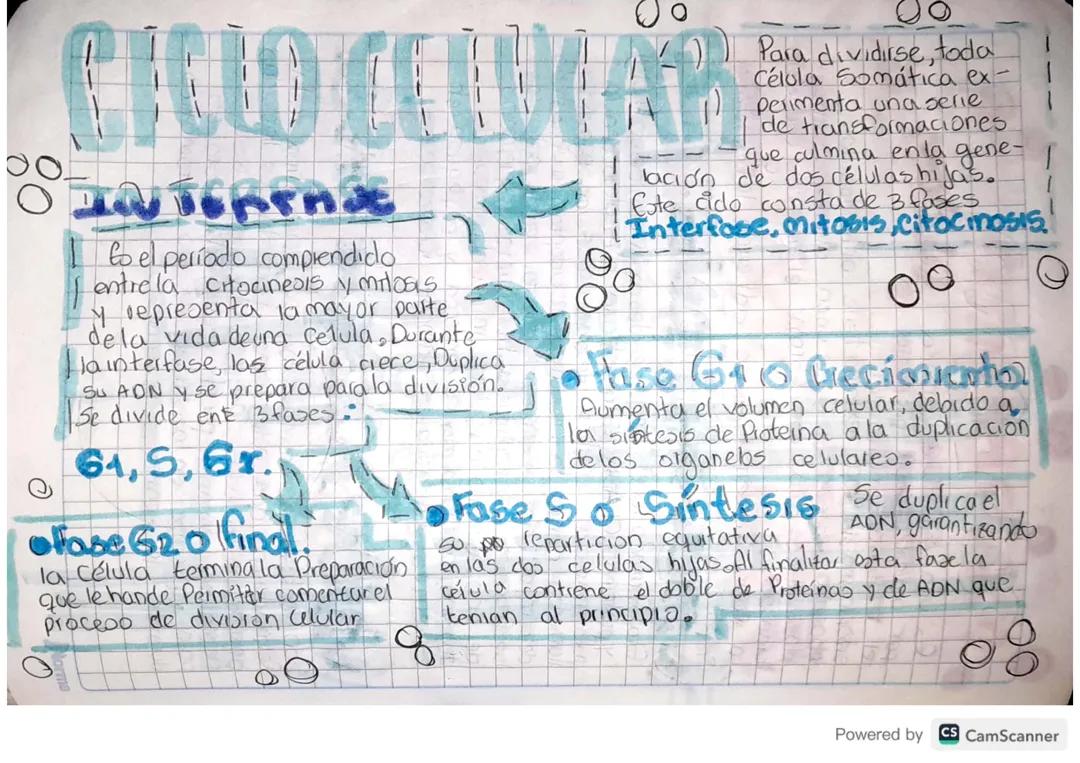 CICLO CELULAR
Para dividirse, toda
célula Somática ex-
perimenta una serie
de transformaciones
que culmina en la gene-
ración de dos células hijas.
Este ciclo consta de 3 fases
Interfase, mitosis, Citocinosis.
INTERFASE
Es el período comprendido
entre la citocinesis y mitosis
y representa la mayor parte
de la vida de una celula. Durante
la interfase, las célula crece, Duplica
su ADN y se prepara para la división.
Se divide ent 3 fases:
G1, S, G2.
Fase G1 o Crecimiento
Aumenta el volumen celular, debido a
la síntesis de Proteina a la duplicación
de los organelos celulares.
Fase S o Síntesis
Se duplica el
ADN, garantizando
su repartición equitativa
en las dos celulas hijas. Al finalizar esta fase la
célula contiene el doble de Proteínas y de ADN que
tenian al principio.
Fase G2 o final.
la célula termina la Preparación
que le han de Permitir comentar el
proceso de división Celular
Powered by CS CamScanner